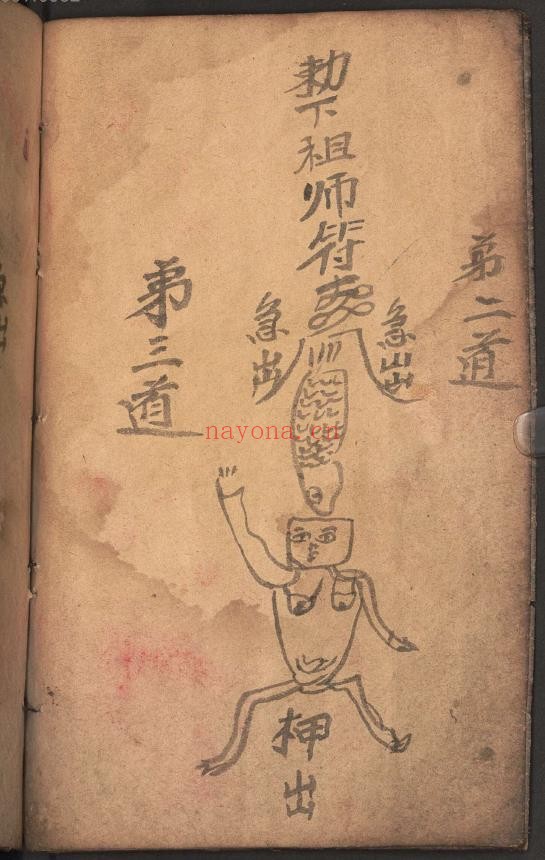 第二道
勅下祖师符
急出
急出
押出
第三道
nayona.cn